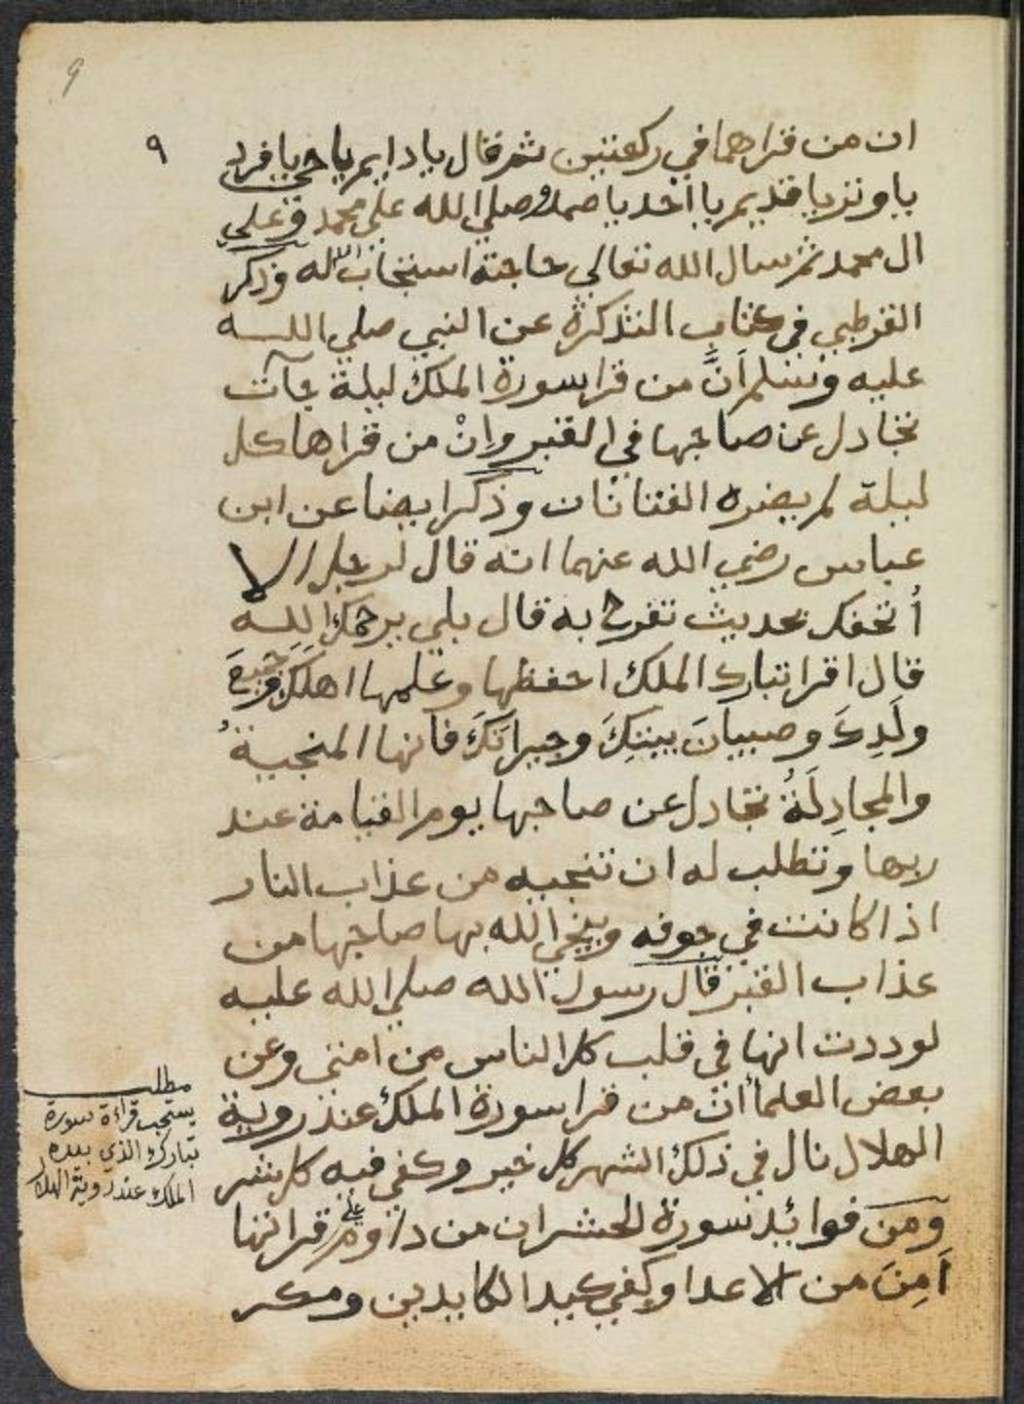 9
٩
ان من قراهما في ركعتين ثم قال يا دايم يا حي يا فرد
يا وتر يا قديم يا احد يا صمد وصلي الله على محمد وعلى
ال محمد ثم سال الله تعالى حاجة استجاب الله له وذكر
القرطبي في كتاب التذكرة عن النبي صلي الله
عليه وسلم اَنَّ من قرا سورة الملك ليلة جآت
تجادل عن صاحبها في القبر واِنْ من قراها كل
ليلة لم يضره الفتانان وذكر ايضا عن ابن
عباس رضي الله عنهما انه قال لرجل الا
اُتحفك بحديث تفرح به قال بلي يرحمك الله
قال اقرا تبارك الملك احفظها وعلمها اهلك وجميع
ولَدِكَ وصبيانَ بيتِكَ وجيرانَكَ فانها المنجيةُ
والمجادِلَةُ تجادل عن صاحبها يوم القيامة عند
ربها وتطلب له ان تنجيه من عذاب النار
اذا كانت في جوفه وينجي الله بها صاحبها من
عذاب القبر قال رسول الله صلي الله عليه
لوددت انها في قلب كل الناس من امتي وعن
بعض العلما أن من قرا سورة الملك عند روية
الهلال نال في ذلك الشهر كل خير وكفي فيه كل شر
ومن فوائد سورة الحشر ان من داوم على قراتها
اَمِنَ من الاعدا وكفي كيد الكايدين ومكر
مطلب
يستحب قراءة سورة
تبارك الذي بيده
الملك عند روية الهلال